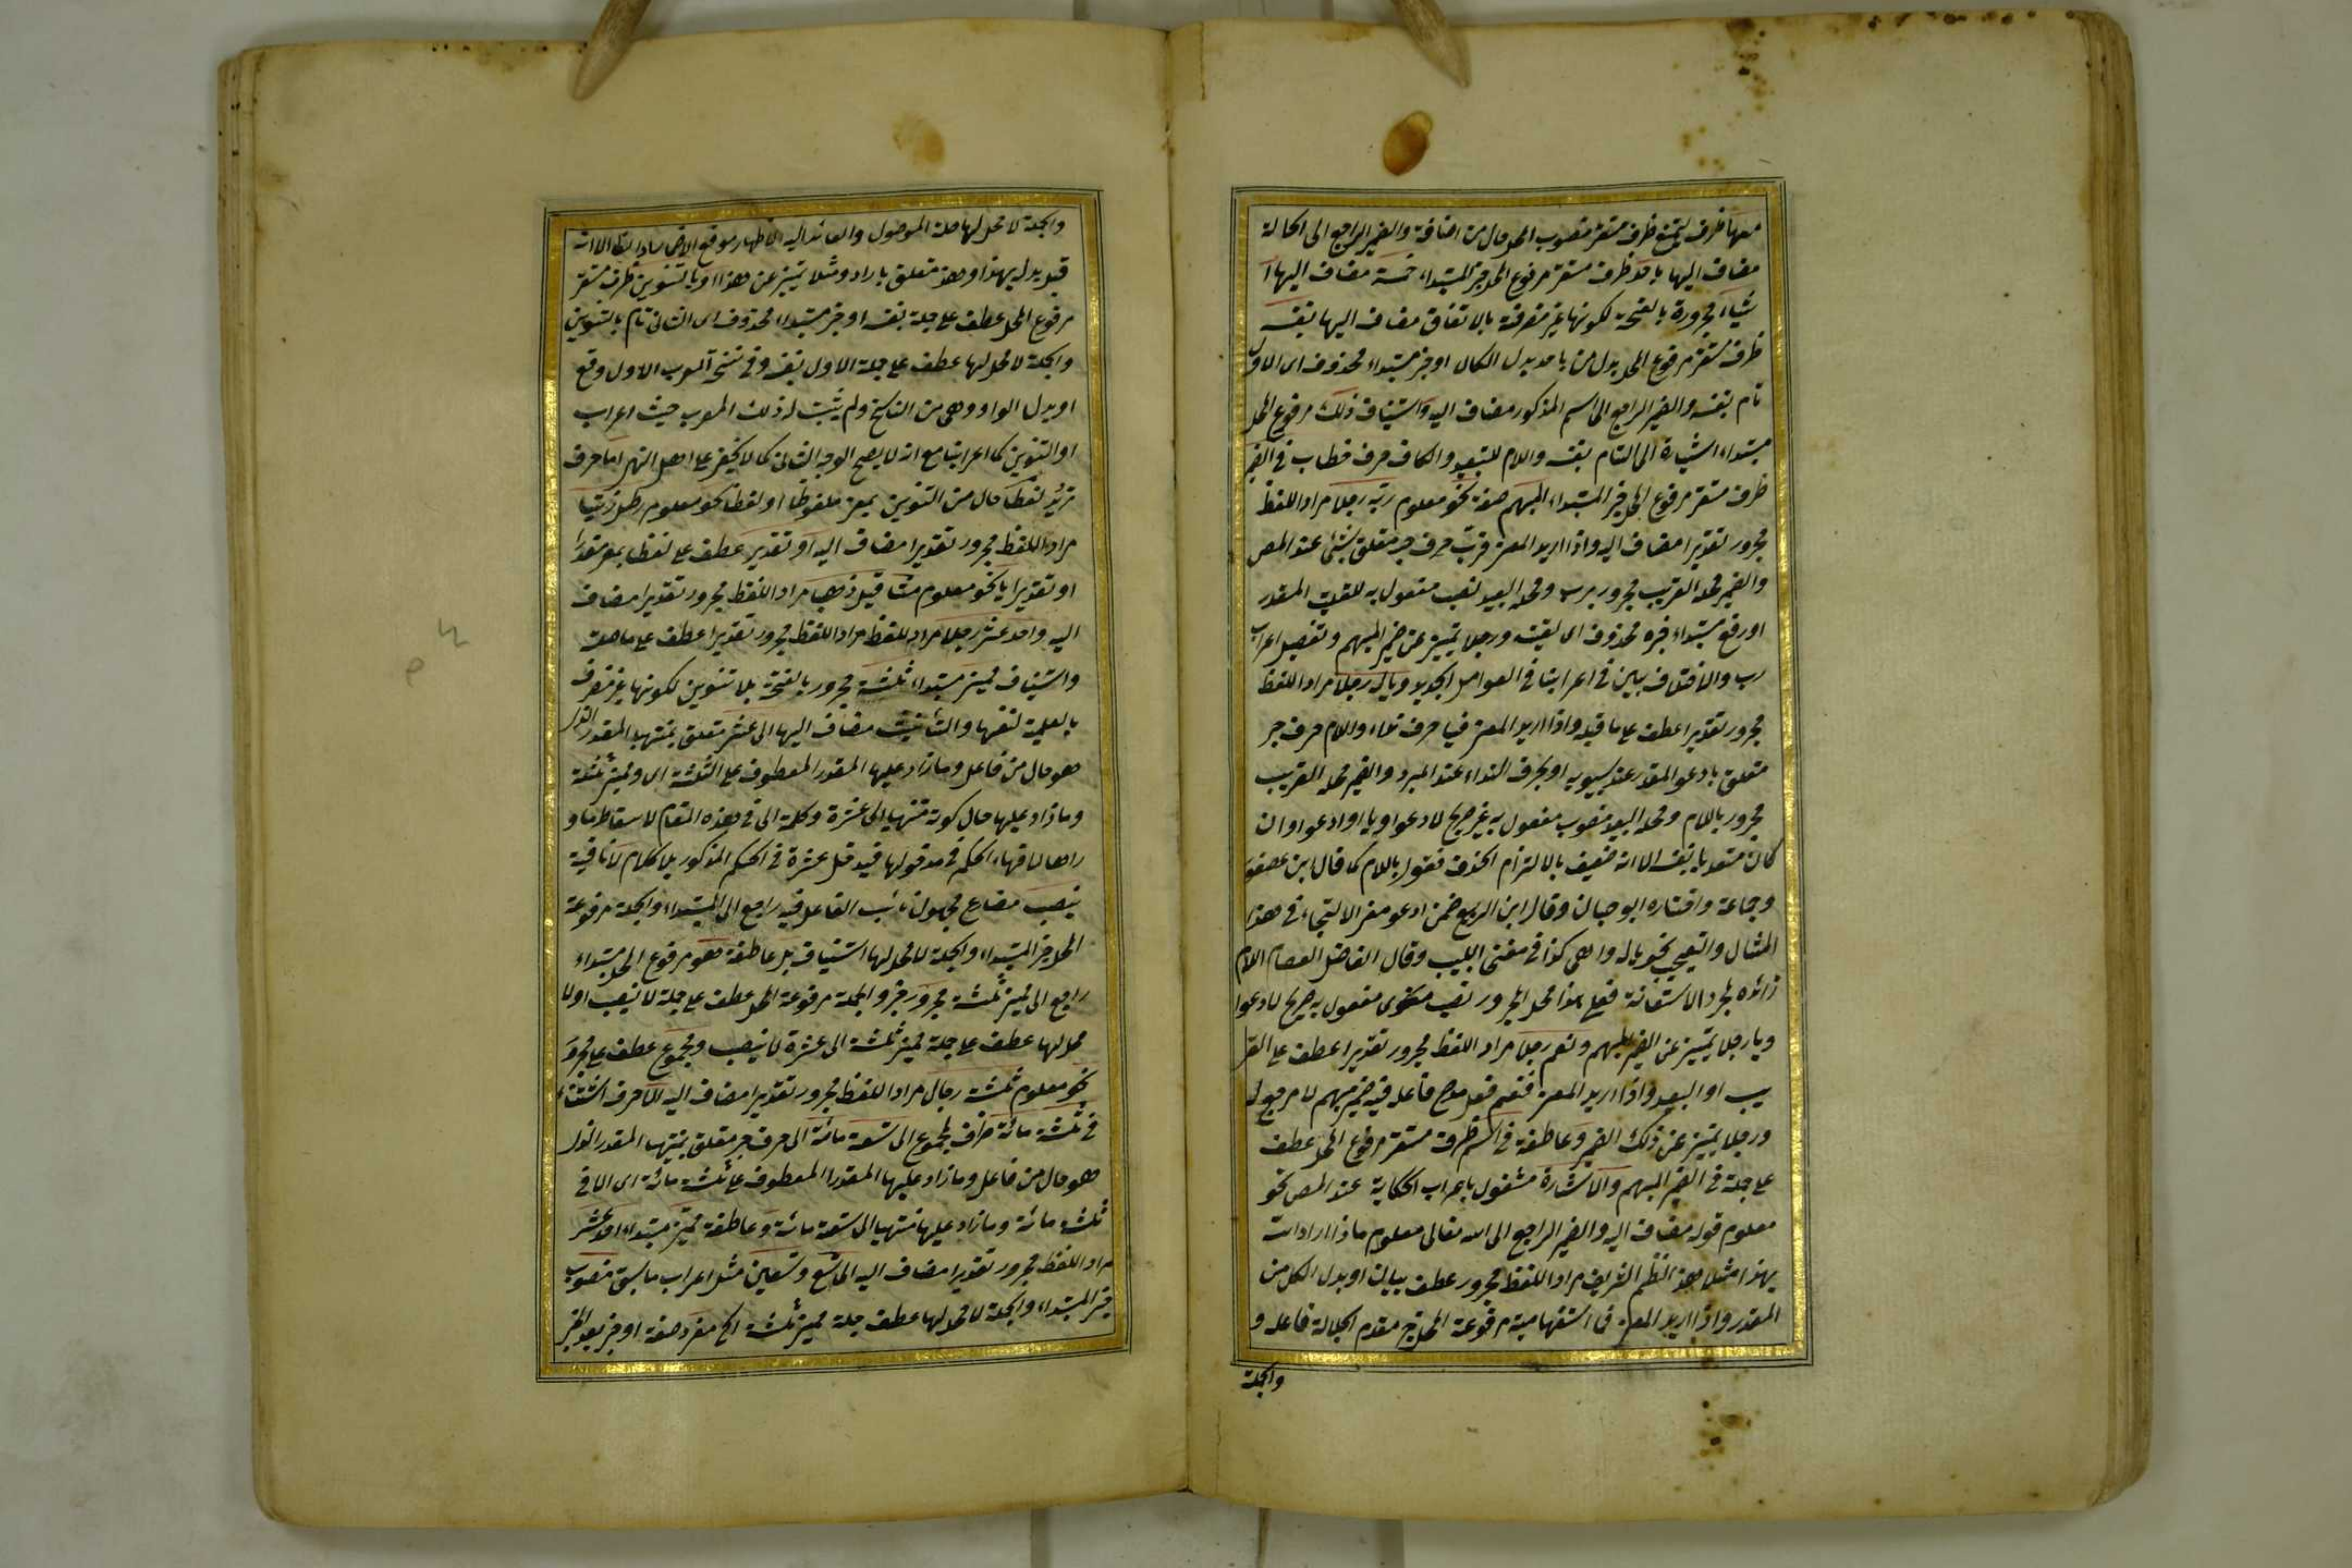 معها ظرف يمتنع ظرف مستقر منصوب المحل حال من اضافة والضمير الراجع الى الحالة
مضاف اليها باحد ظرف مستقر مرفوع المحل خبر المبتداء خمسة مضاف اليها ا
شياء مجرورة بالفتحة لكونها غير منصرفة بالاتفاق مضاف اليها بنفسه
ظرف مستقر مرفوع المحل بدل من باحد بدل الكل او خبر مبتداء محذوف اى الاول
تام بنفسه والضمير الراجع الى اسم المذكور مضاف اليه واستيناف ذلك مرفوع المحل
مبتداء اشارة الى التام بنفسه واللام للتبعيد والكاف حرف خطاب فى الضمير
ظرف مستقر مرفوع المحل خبر المبتداء المبهم صفة نحو معلوم ربه رجلا مراد اللفظ
مجرور تقديرا مضاف اليه واذا اريد المعنى فرب حرف جر متعلق بشئ عند المص
والضمير محله القريب مجرور برب ومحله البعيد نصب مفعول به للقيت المقدر
او رفع مبتداء خبره محذوف اى لقيته ورجلا تمييز عن ضمير المبهم وتفصيل اعراب
رب والاختلاف بين فى اعرابنا فى العوامل الجديد ويا له رجلا مراد اللفظ
مجرور تقديرا عطف على ما قبله واذا اريد المعنى فيا حرف نداء واللام حرف جر
متعلق بادعو المقدر عند سيبويه او بحرف النداء عند المبرد والضمير محله القريب
مجرور باللام ومحله البعيد منصوب مفعول به غير صريح لادعو او يا او ادعو او ان
كان متعديا بنفسه الا انه ضعيف بالالتزام الحذف فقوى باللام كما قال ابن عصفور
وجماعة واختاره ابو حيان وقال ابن الربيع ضمن ادعو معنى الالتجاء فى هذا
المثال والتعجب نحو يا له واهى كذا فى مغنى اللبيب وقال الفاضل العصام اللام
زائده لمجرد الاستغاثة فعلى هذا محل المجرور نصب معنوى مفعول به صريح لادعوا
ويا رجلا تمييز عن الضمير المبهم ونعم رجلا مراد اللفظ مجرور تقديرا عطف على القر
يب او البعيد واذا اريد المعنى فنعم فعل مدح فاعله فيه ضمير مبهم لا مرجع له
ورجلا تمييز عن ذلك الضمير وعاطفة فى اسم ظرف مستقر مرفوع المحل عطف
على جملة فى الضمير المبهم والاشارة مشغول باعراب الحكاية عند المص نحو
معلوم قوله مضاف اليه والضمير الراجع الى الله تعالى معلوم ماذا اراد الله
بهذا مثلا هذا النظم الشريف مراد اللفظ مجرور عطف بيان او بدل الكل من
المقدر واذا اريد المعنى فما استفهامية مرفوعة المحل خبر مقدم الجلالة فاعله و
والجملة
والجملة لا محل لها صلة الموصول والعائد اليه
قبله بدليه بهذا وهذا متعلق باراد ومثلا تمييز عن هذا او بالتنوين ظرف مستقر
مرفوع المحل عطف على جملة بنفسه او خبر مبتداء محذوف اى الثانى تام بالتنوين
والجملة لا محل لها عطف على جملة الاول بنفسه وفى نسخة المعرب الاول وقع
او بدل الواو وهى من الناسخ ولم يثبت له ذلك المعرب حيث اعراب
او التنوين كما اعرابنا مع انه لا يصح الوجه الثانى كما لا يخفى على اهل النهى اما حرف
ترديد لفظا حال من التنوين بمعنى ملفوظا او لفظا نحو معلوم رطل زيتا
مراد اللفظ مجرور تقديرا مضاف اليه او تقديرا عطف على لفظا بمعنى مقدرا
او تقديرا يا نحو معلوم مثاقيل ذهبا مراد اللفظ مجرور تقديرا مضاف
اليه واحد عشر رجلا مراد اللفظ مراد اللفظ مجرور تقديرا عطف على ما هنه
واستيناف مميز مبتداء ثلثة مجرور بالفتحة بلا تنوين لكونها غير منصرف
بالعلمية لنفسها والتأنيث مضاف اليها الى عشر متعلق بمنتهيا المقدر الذى
هو حال من فاعل وما زاد عليها المقدر المعطوف على الثلثة اى ومميز ثلثة
وما زاد عليها حال كونه منتهيا الى عشرة وكلمة الى فى هذه المقام لاسقاط ما و
راها لا فهاء الحكم فى مدخولها فيدخل عشرة فى الحكم المذكور بلا كلام لا نافية
ينصب مضارع مجهول نائب الفاعل فيه راجع الى المبتداء والجملة مرفوعة
المحل خبر المبتداء والجملة لا محل لها استيناف بل عاطفة هو مرفوع المحل مبتداء
راجع الى مميز ثلثة مجرور خبره والجملة مرفوعة المحل عطف على جملة لا ينصب او لا
محل لها عطف على جملة مميز ثلثة الى عشرة لا ينصب ومجموع عطف على مجرور
نحو معلوم ثلثة رجال مراد اللفظ مجرور تقديرا مضاف اليه الا حرف استثناء
فى ثلثة مائة ظرف لمجموع الى تسعة مائة الى حرف جر متعلق بمنتهيا المقدر الذى
هو حال من فاعل وما زاد عليها المقدر المعطوف على ثلثة مائة اى الا فى
ثلثة مائة وما زاد عليها منتهيا الى تسعة مائة وعاطفة مميز مبتداء احد عشر
مراد اللفظ مجرور تقديرا مضاف اليه الى تسع وتسعين مثل اعراب ما سبق منصوب
خبر المبتداء والجملة لا محل لها عطف جملة مميز ثلثة الخ مفرد صفة او خبر بعد الخبر